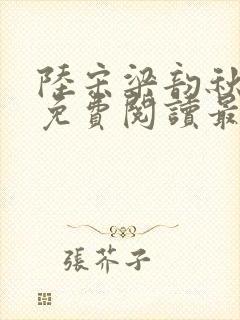 陸宗梁韵秋
免費閱讀最
張芥子